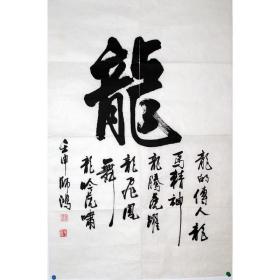 龍
龍的傳人龍
馬精神
龍騰虎躍
龍飛鳳
舞
龍吟虎嘯
壬申 師鴻